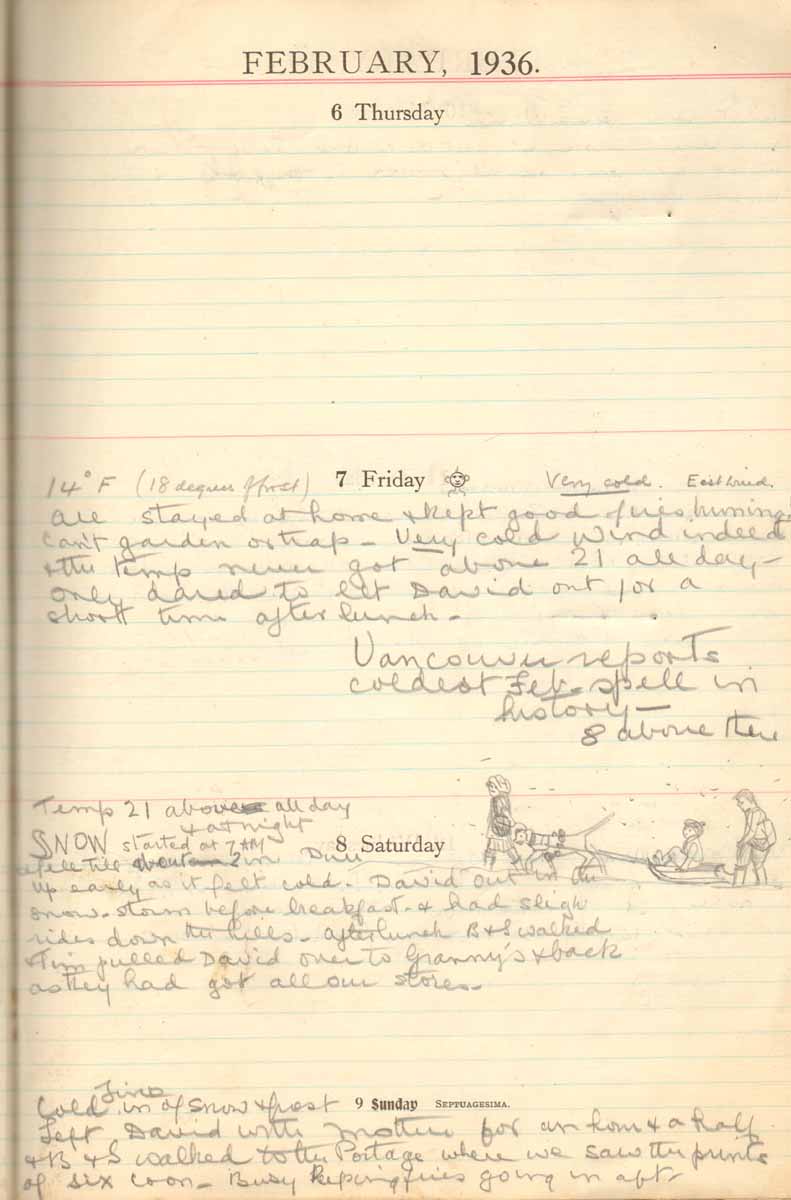 FEBRUARY, 1936.
6 Thursday
14° F (18 degrees frost) 7 Friday Very cold. East wind.
all stayed at home & kept good fires burning!
Can't garden or trap - Very cold wind indeed
& the temp never got above 21 all day -
only dared to let David out for a
short time after lunch -
Vancouver reports
coldest Feb. spell in
history -
8 above there
Temp 21 above all day
& at night
SNOW started at 7 AM 8 Saturday
& fell till about 2 in
up early as it felt cold. David out in the
snow-storm before breakfast - & had sleigh
rides down the hills - after lunch B & S walked
& Tim pulled David over to Granny's & back
as they had got all our stores -
Cold in of snow & frost 9 Sunday SEPTUAGESIMA.
Left David with mother for an hour & a half
& B & S walked to the Portage where we saw the prints
of six coon - Busy keeping fires going in aft -